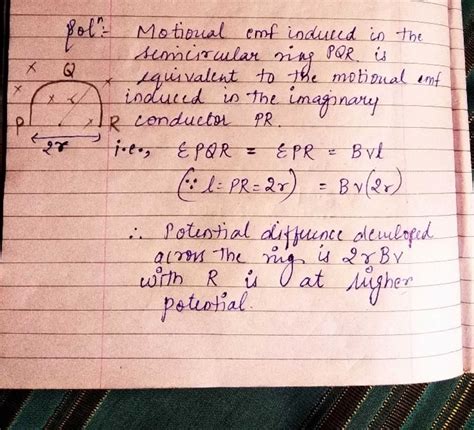 Solⁿ:- Motional emf induced in the
semicircular ring PQR. is
equivalent to the motional emf
induced in the imaginary
conductor PR.
Q
P R
2r
i.e., εPQR = εPR = Bvl
(∵ l = PR = 2r) = Bv(2r)
∴ Potential difference developed
across the ring is 2rBv
with R is at higher
potential.